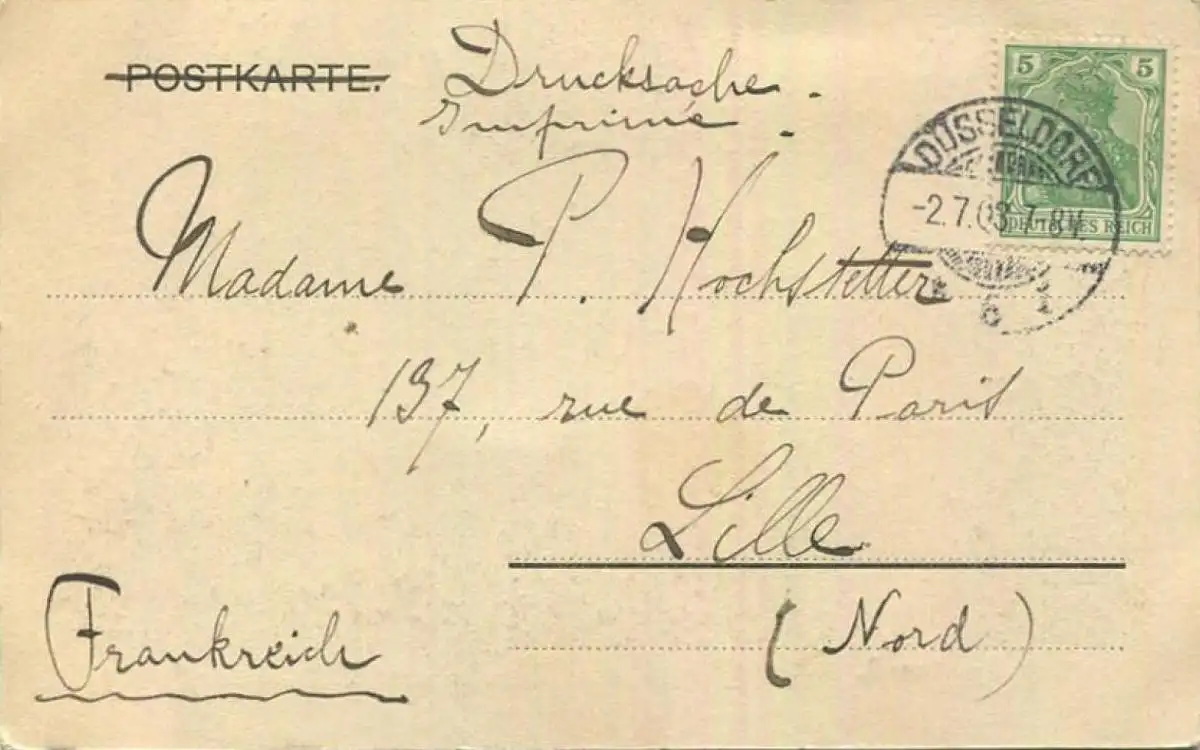 POSTKARTE.
Drucksache.
Imprimé.
5 5
DEUTSCHES REICH
DÜSSELDORF
-2.7.03. 7-8N.
1
Madame P. Hochstetter
197, rue de Paris
Lille
(Nord)
Frankreich